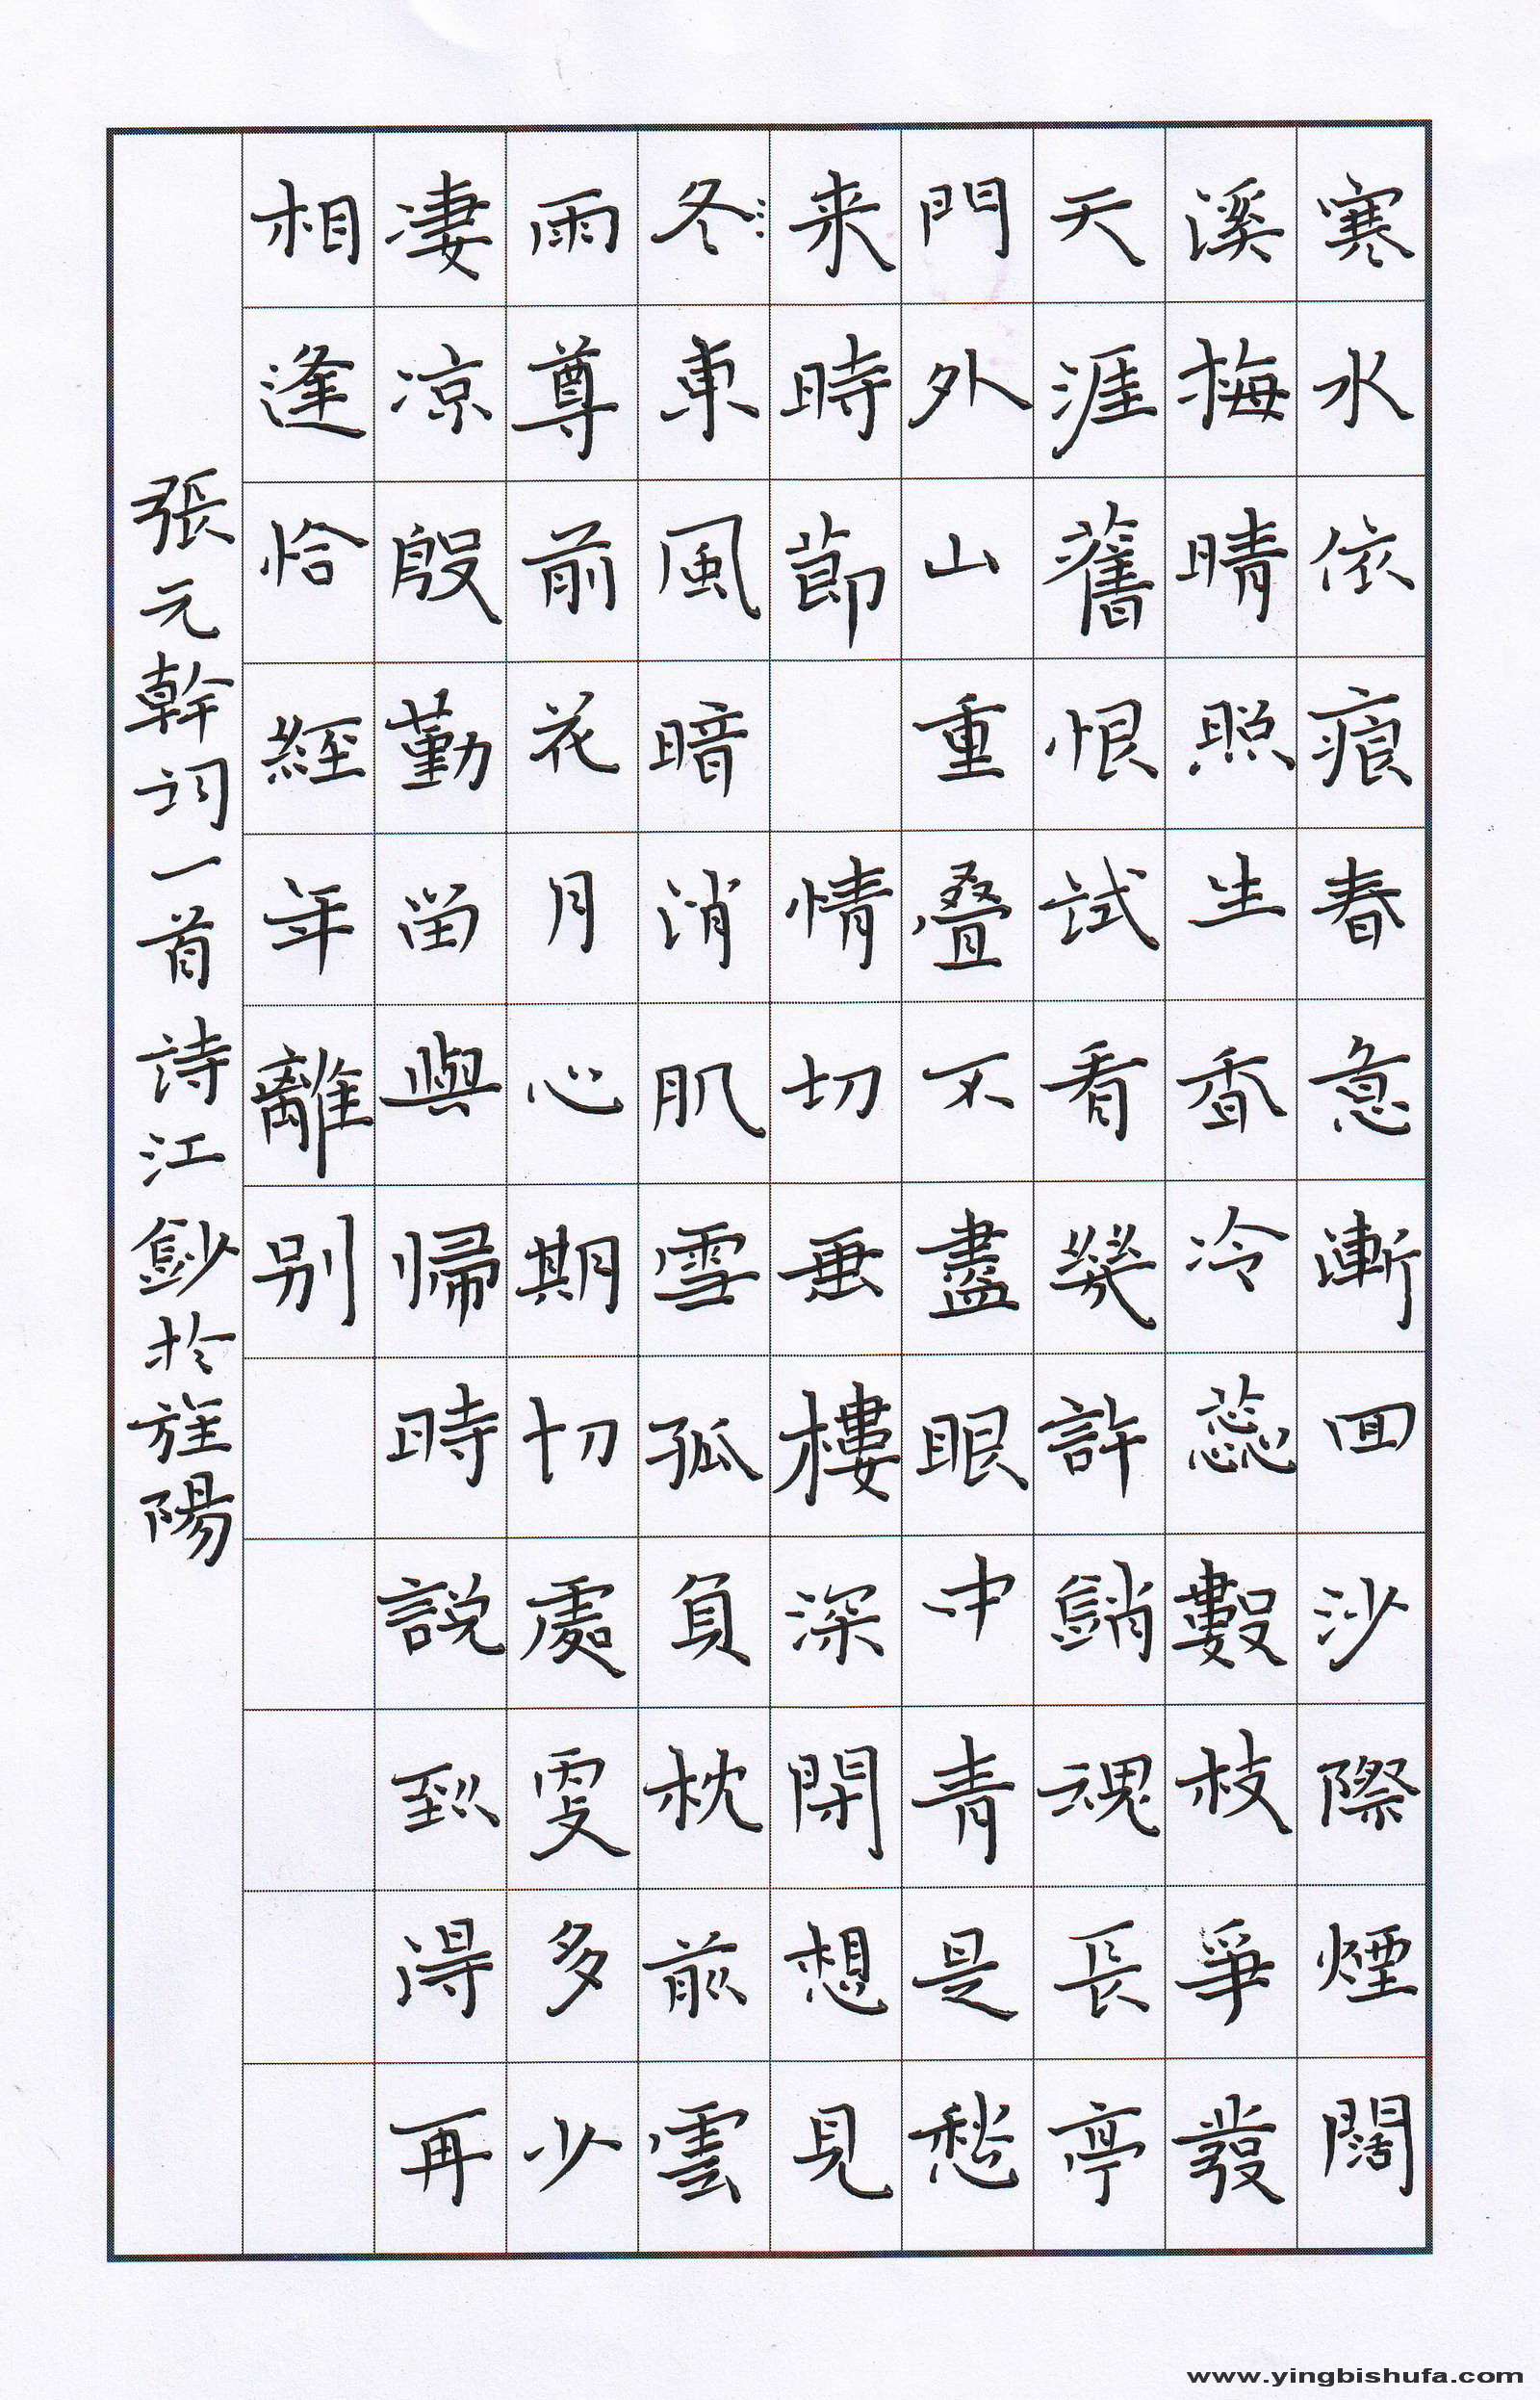 寒水依痕春意漸回沙際煙闊
溪梅晴照生香冷蕊數枝爭發
天涯舊恨試看幾許銷魂長亭
門外山重叠不盡眼中青是愁
来時節 情切垂樓深閉想見
冬東風暗消肌雪孤負枕前雲
雨尊前花月心期切處更多少
凄凉殷勤留與歸時說到得再
相逢恰經年離别
張元幹詞一首詩江鈔於旌陽
www.yingbishufa.com